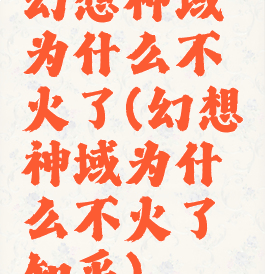 幻想神域
为什么不
火了(幻想
神域为什
么不火了
知乎)